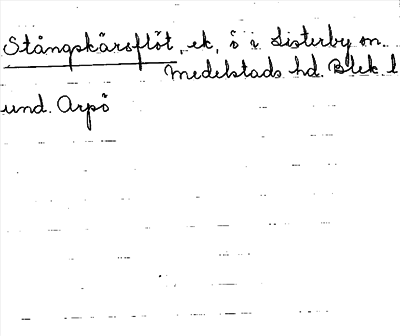 Stångskärsflöt, ek, ö i Listerby sn.
Medelstads hd. Blek. l
und. Arpö